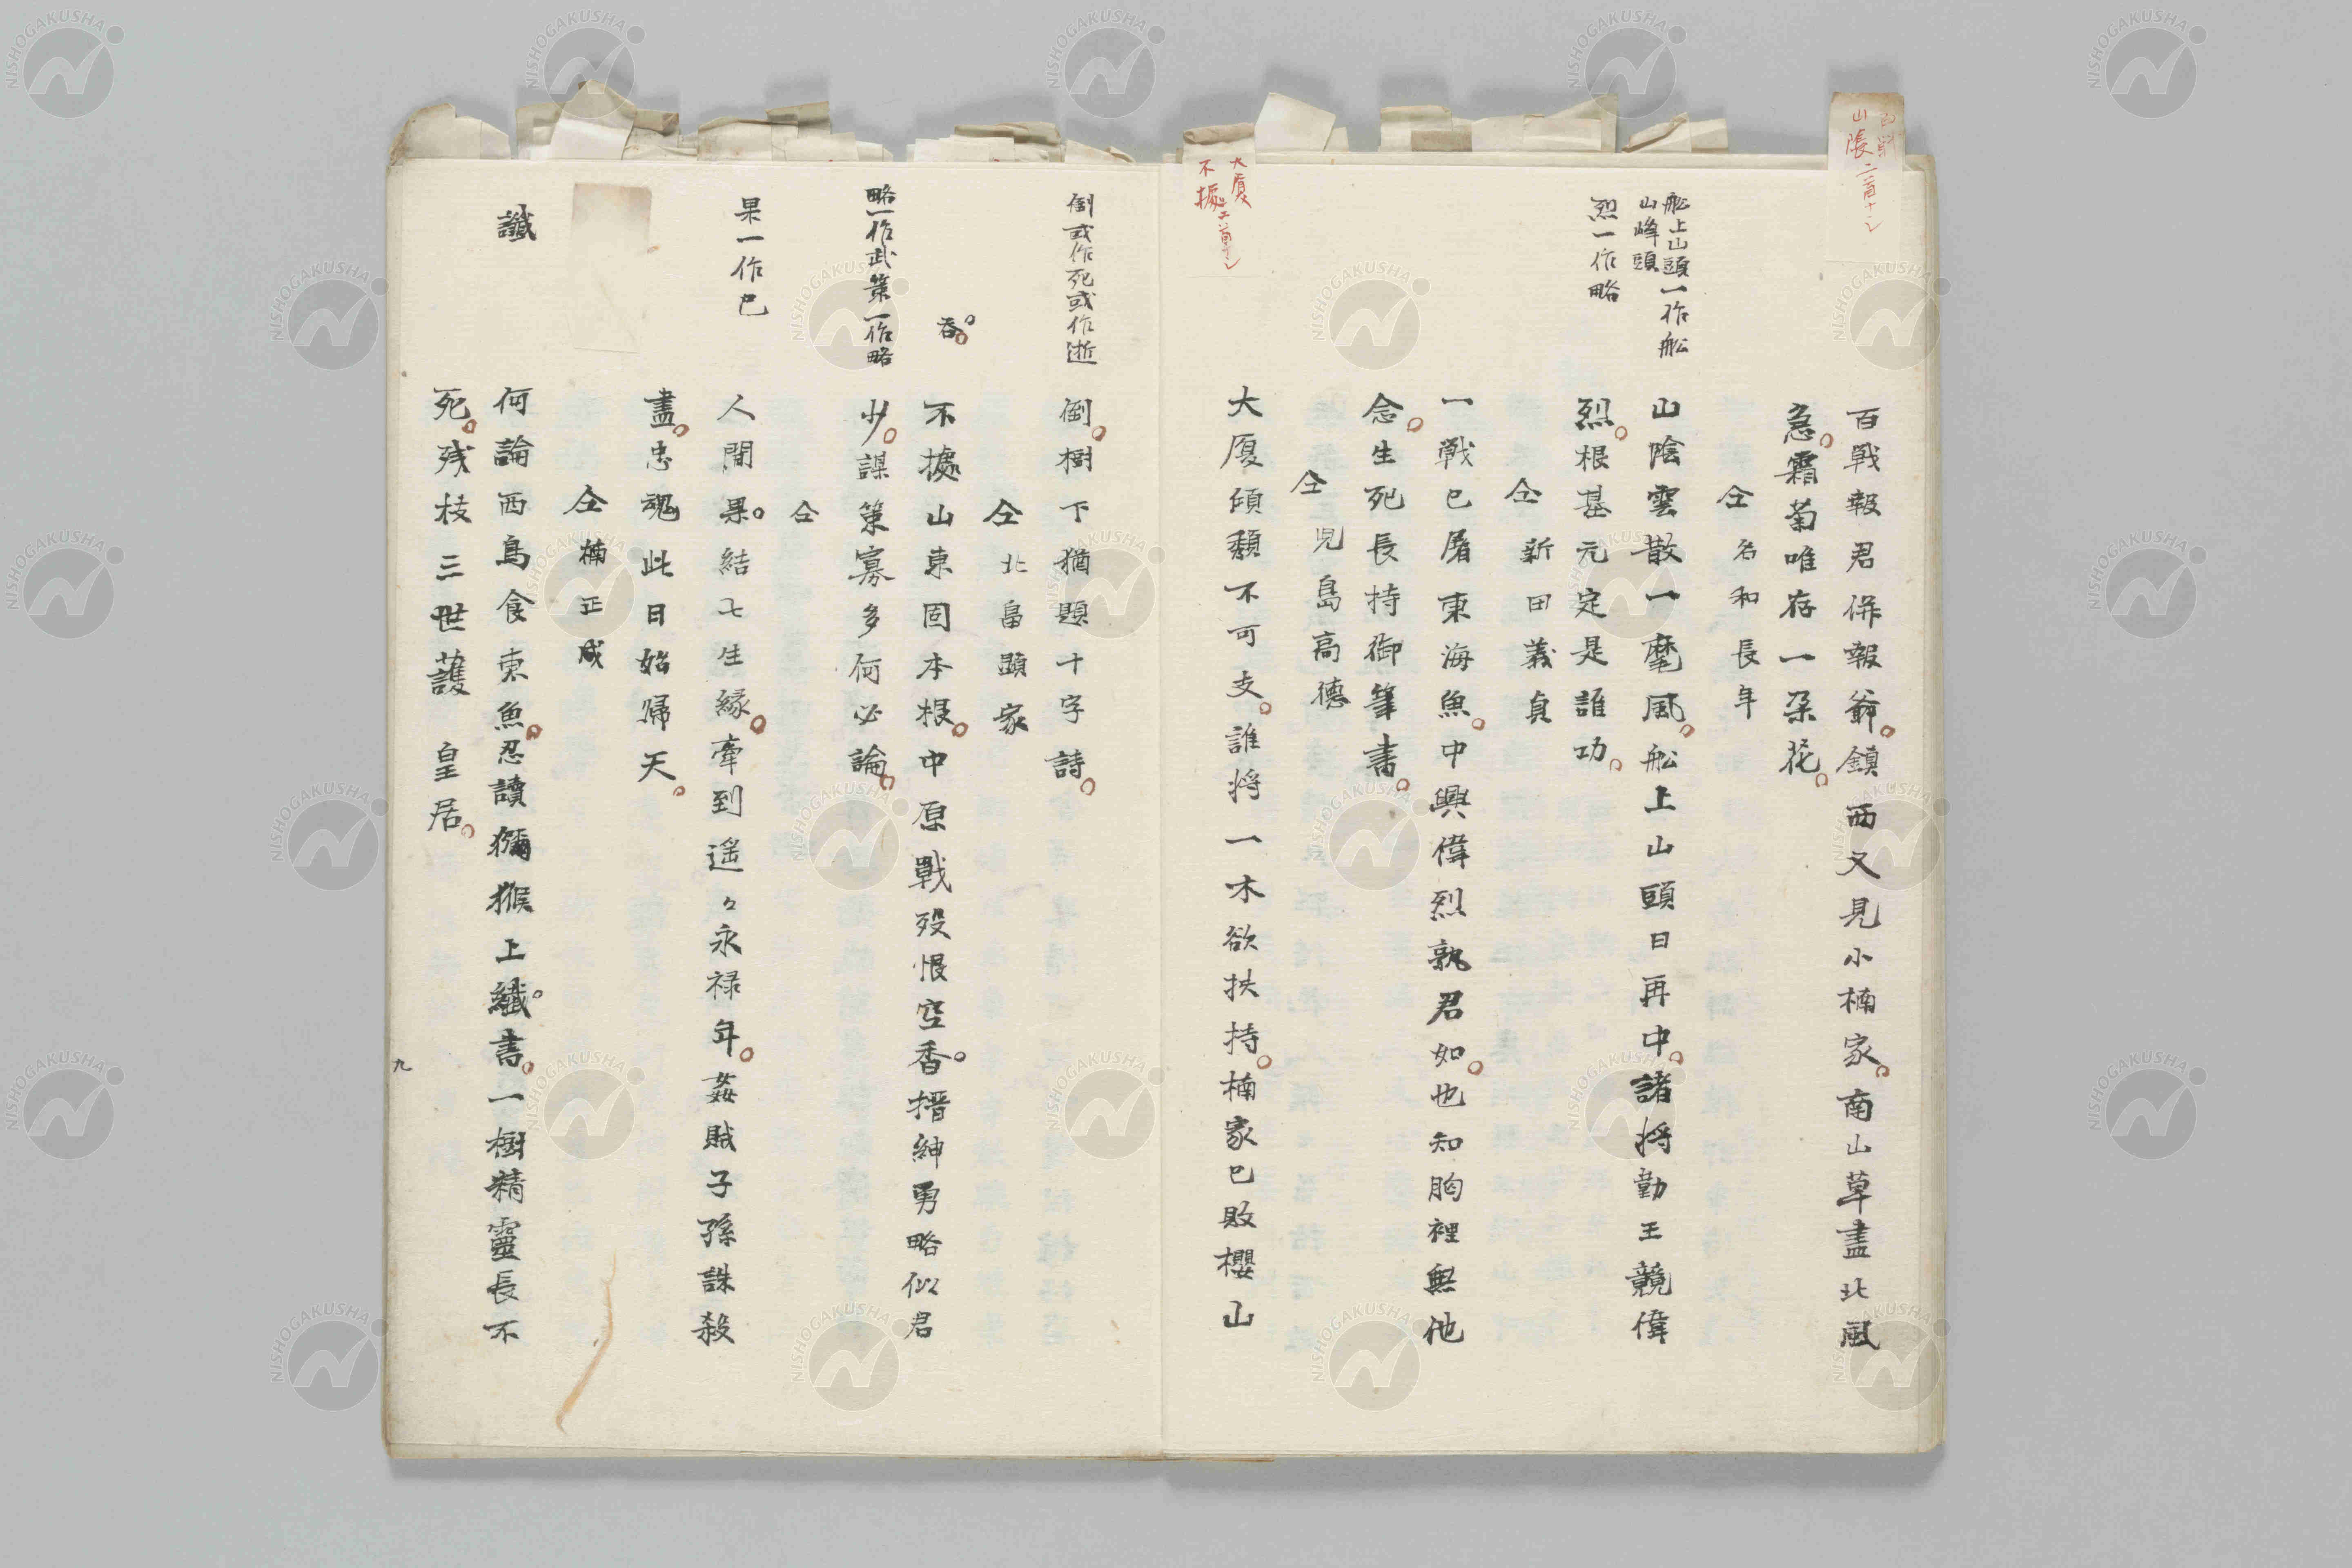 百戰
山陰二首十ン
舩上山頭一作舩
山峰頭
烈一作略
百戰報君併報爺鎮西又見小楠家南山草盡北風
急霜菊唯存一朶花
仝名和長年
山陰雲散一麾風舩上山頭日再中諸将勤王競偉
烈根基元定是誰功
仝新田義貞
一戰已屠東海魚中興偉烈孰君如也知胸裡無他
念生死長持御筆書
仝児島高德
大厦傾頽不可支誰将一木欲扶持楠家已敗櫻山
大厦
不據二首十ン
倒或作死或作逝
倒樹下猶題十字詩
仝北畠顕家
吞
不據山東固本根中原戰歿恨空吞搢紳勇略似君
略一作武策一作略
少謀策寡多何必論
仝
果一作已
人間果結七生縁牽到遥々永禄年姦賊子孫誅殺
盡忠魂此日始歸天
仝楠正成
讖
何論西鳥食東魚忍讀獼猴上讖書一樹精靈長不
死残枝三世護 皇居
九
NISHOGAKUSHA